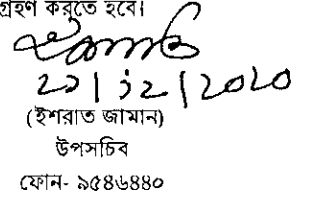 গ্রহণ করতে হবে।
২১|১২|২০২০
(ইশরাত জামান)
উপসচিব
ফোন- ৯৫৪৬৪৪০